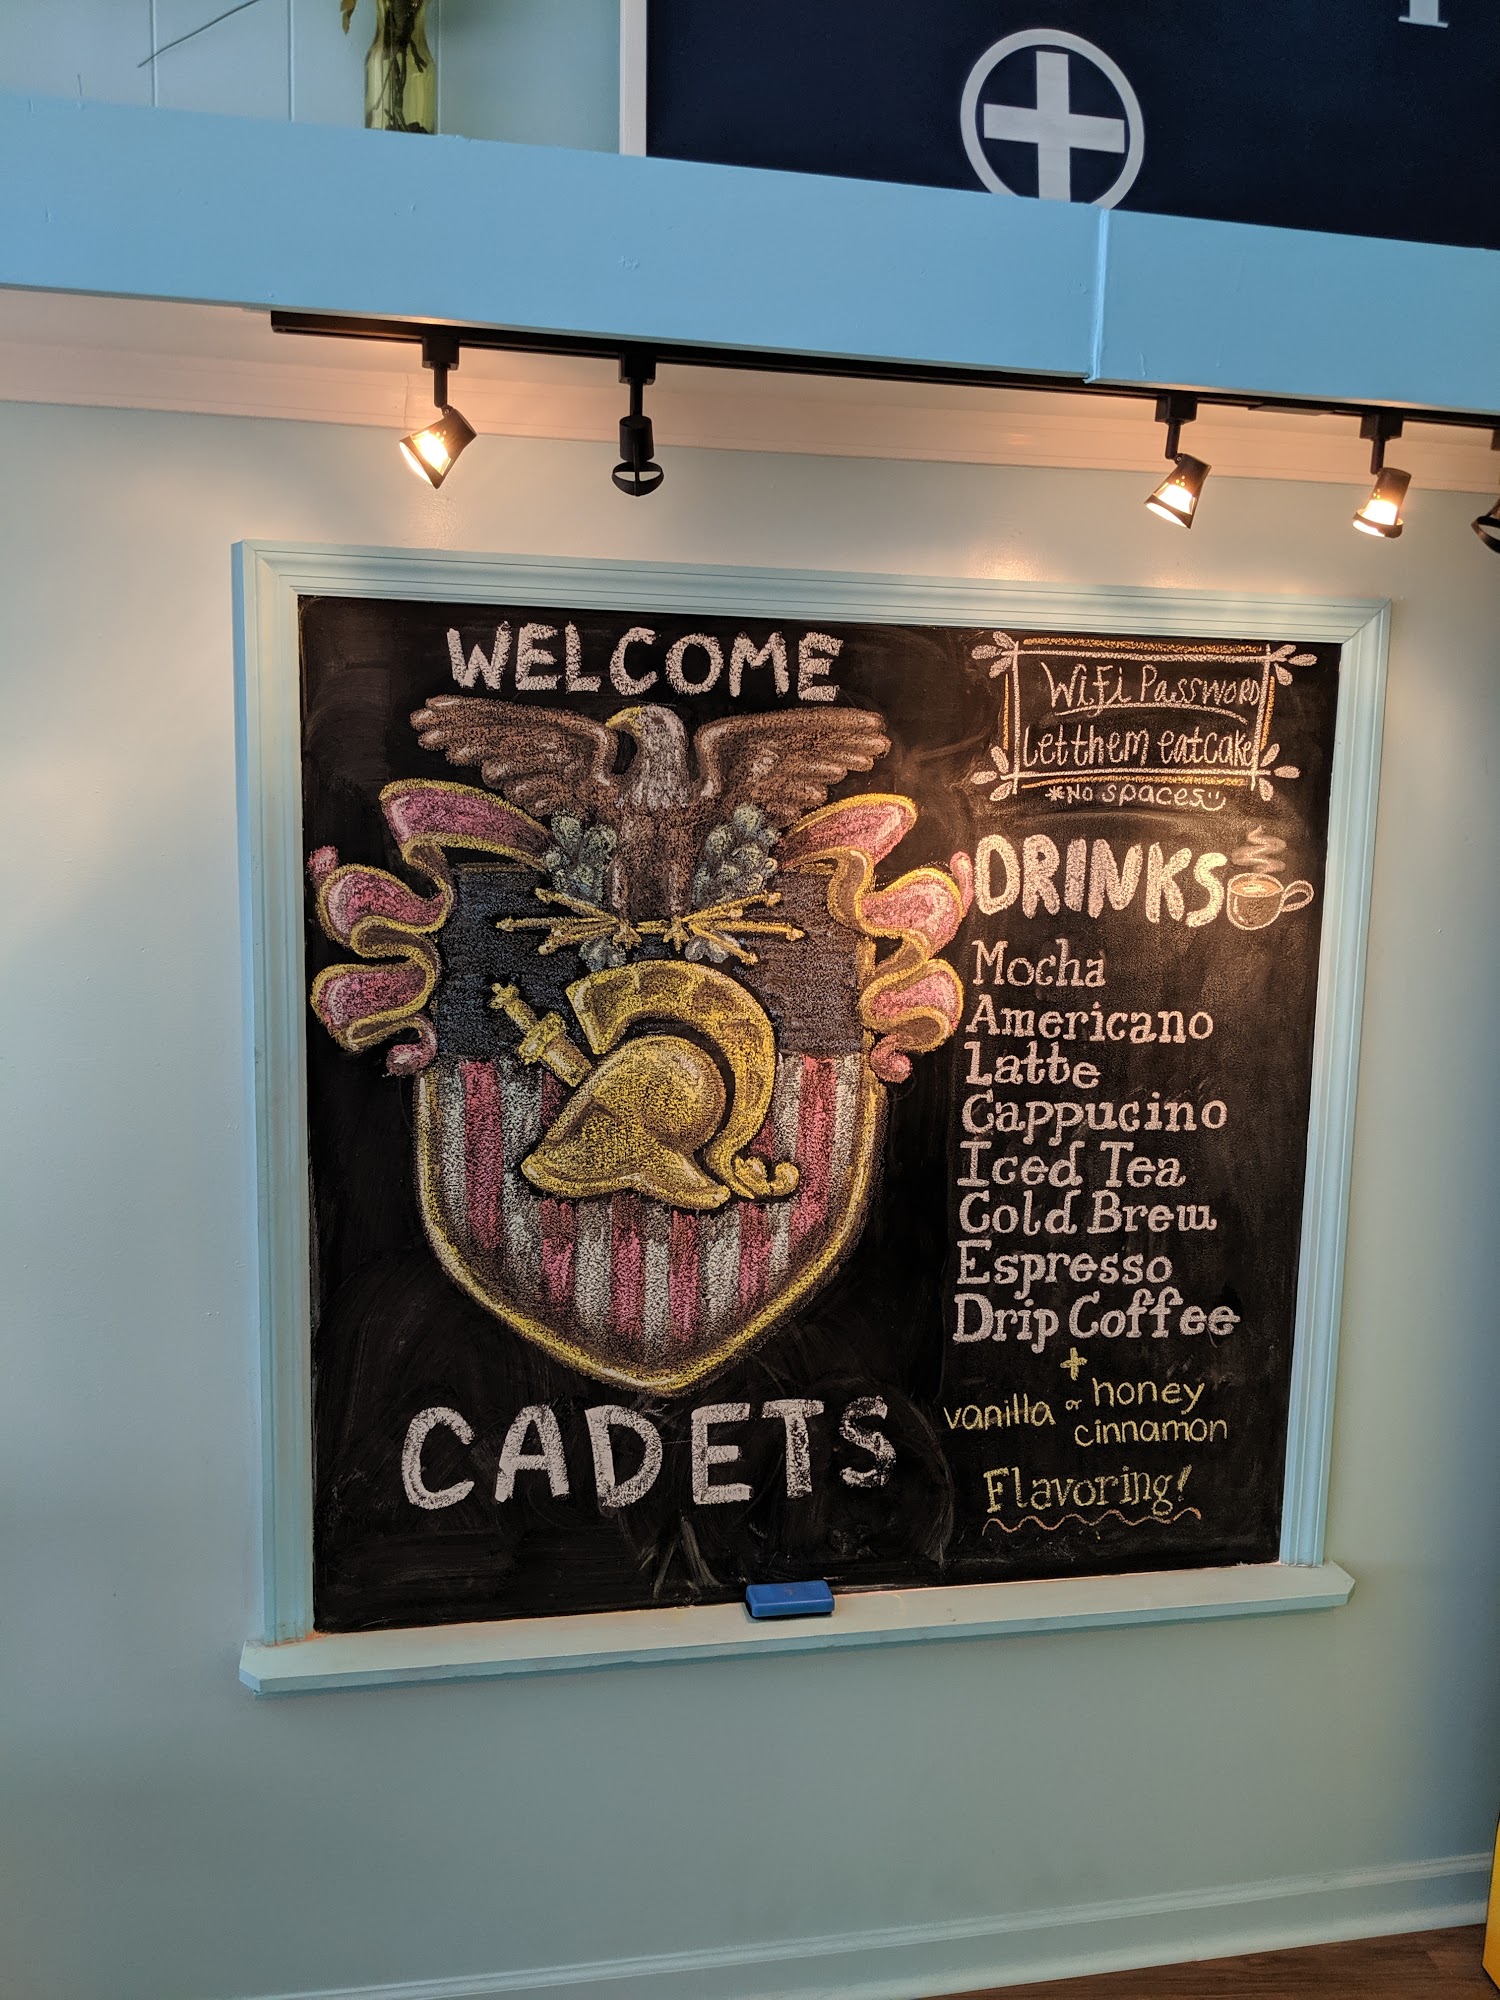 WELCOME
CADETS
WiFi PASSWORD
Letthem eatcake
*No spaces
DRINKS
Mocha
Americano
Latte
Cappucino
Iced Tea
Cold Brew
Espresso
Drip Coffee
+
vanilla or honey
cinnamon
Flavoring!